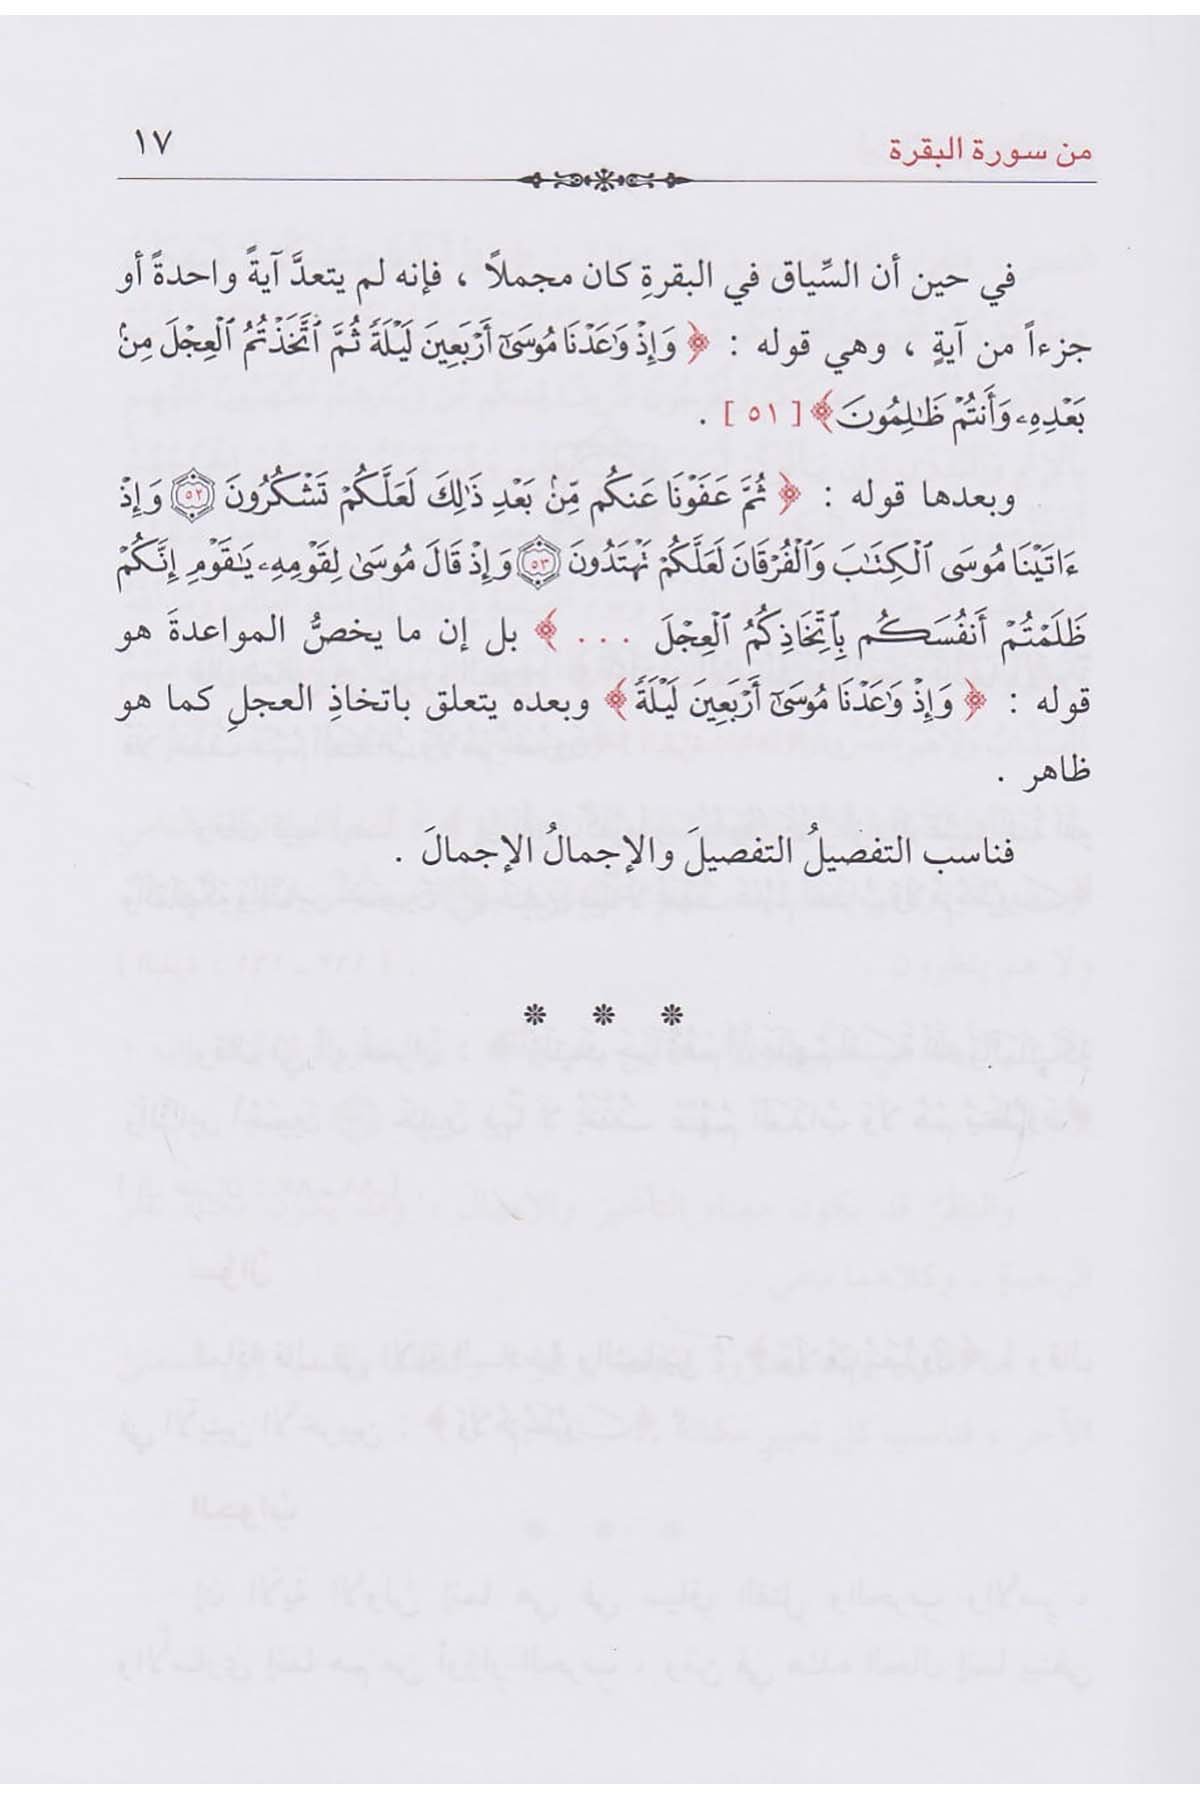 من سورة البقرة ١٧
في حين أن السِّياق في البقرةِ كان مجملاً ، فإنه لم يتعدَّ آيةً واحدةً أو
جزءاً من آيةٍ ، وهي قوله : ﴿ وَإِذْ وَٰعَدْنَا مُوسَىٰٓ أَرْبَعِينَ لَيْلَةً ثُمَّ ٱتَّخَذْتُمُ ٱلْعِجْلَ مِنۢ
بَعْدِهِۦ وَأَنتُمْ ظَٰلِمُونَ﴾ [ ٥١ ] .
وبعدها قوله : ﴿ ثُمَّ عَفَوْنَا عَنكُم مِّنۢ بَعْدِ ذَٰلِكَ لَعَلَّكُمْ تَشْكُرُونَ ٥٢ وَإِذْ
ءَاتَيْنَا مُوسَى ٱلْكِتَٰبَ وَٱلْفُرْقَانَ لَعَلَّكُمْ تَهْتَدُونَ ٥٣ وَإِذْ قَالَ مُوسَىٰ لِقَوْمِهِۦ يَٰقَوْمِ إِنَّكُمْ
ظَلَمْتُمْ أَنفُسَكُم بِٱتِّخَاذِكُمُ ٱلْعِجْلَ ... ﴾ بل إن ما يخصُّ المواعدةَ هو
قوله : ﴿ وَإِذْ وَٰعَدْنَا مُوسَىٰٓ أَرْبَعِينَ لَيْلَةً ﴾ وبعده يتعلق باتخاذِ العجلِ كما هو
ظاهر .
فناسب التفصيلُ التفصيلَ والإجمالُ الإجمالَ .